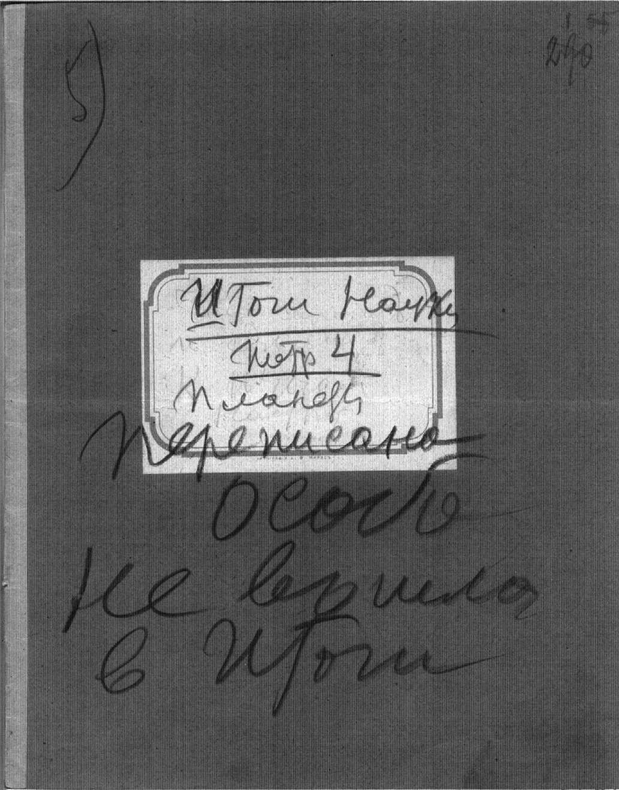 5)
290
Итоги Науки
тетр 4
Планеды
Переписано
особо
Не вошла
в Итоги